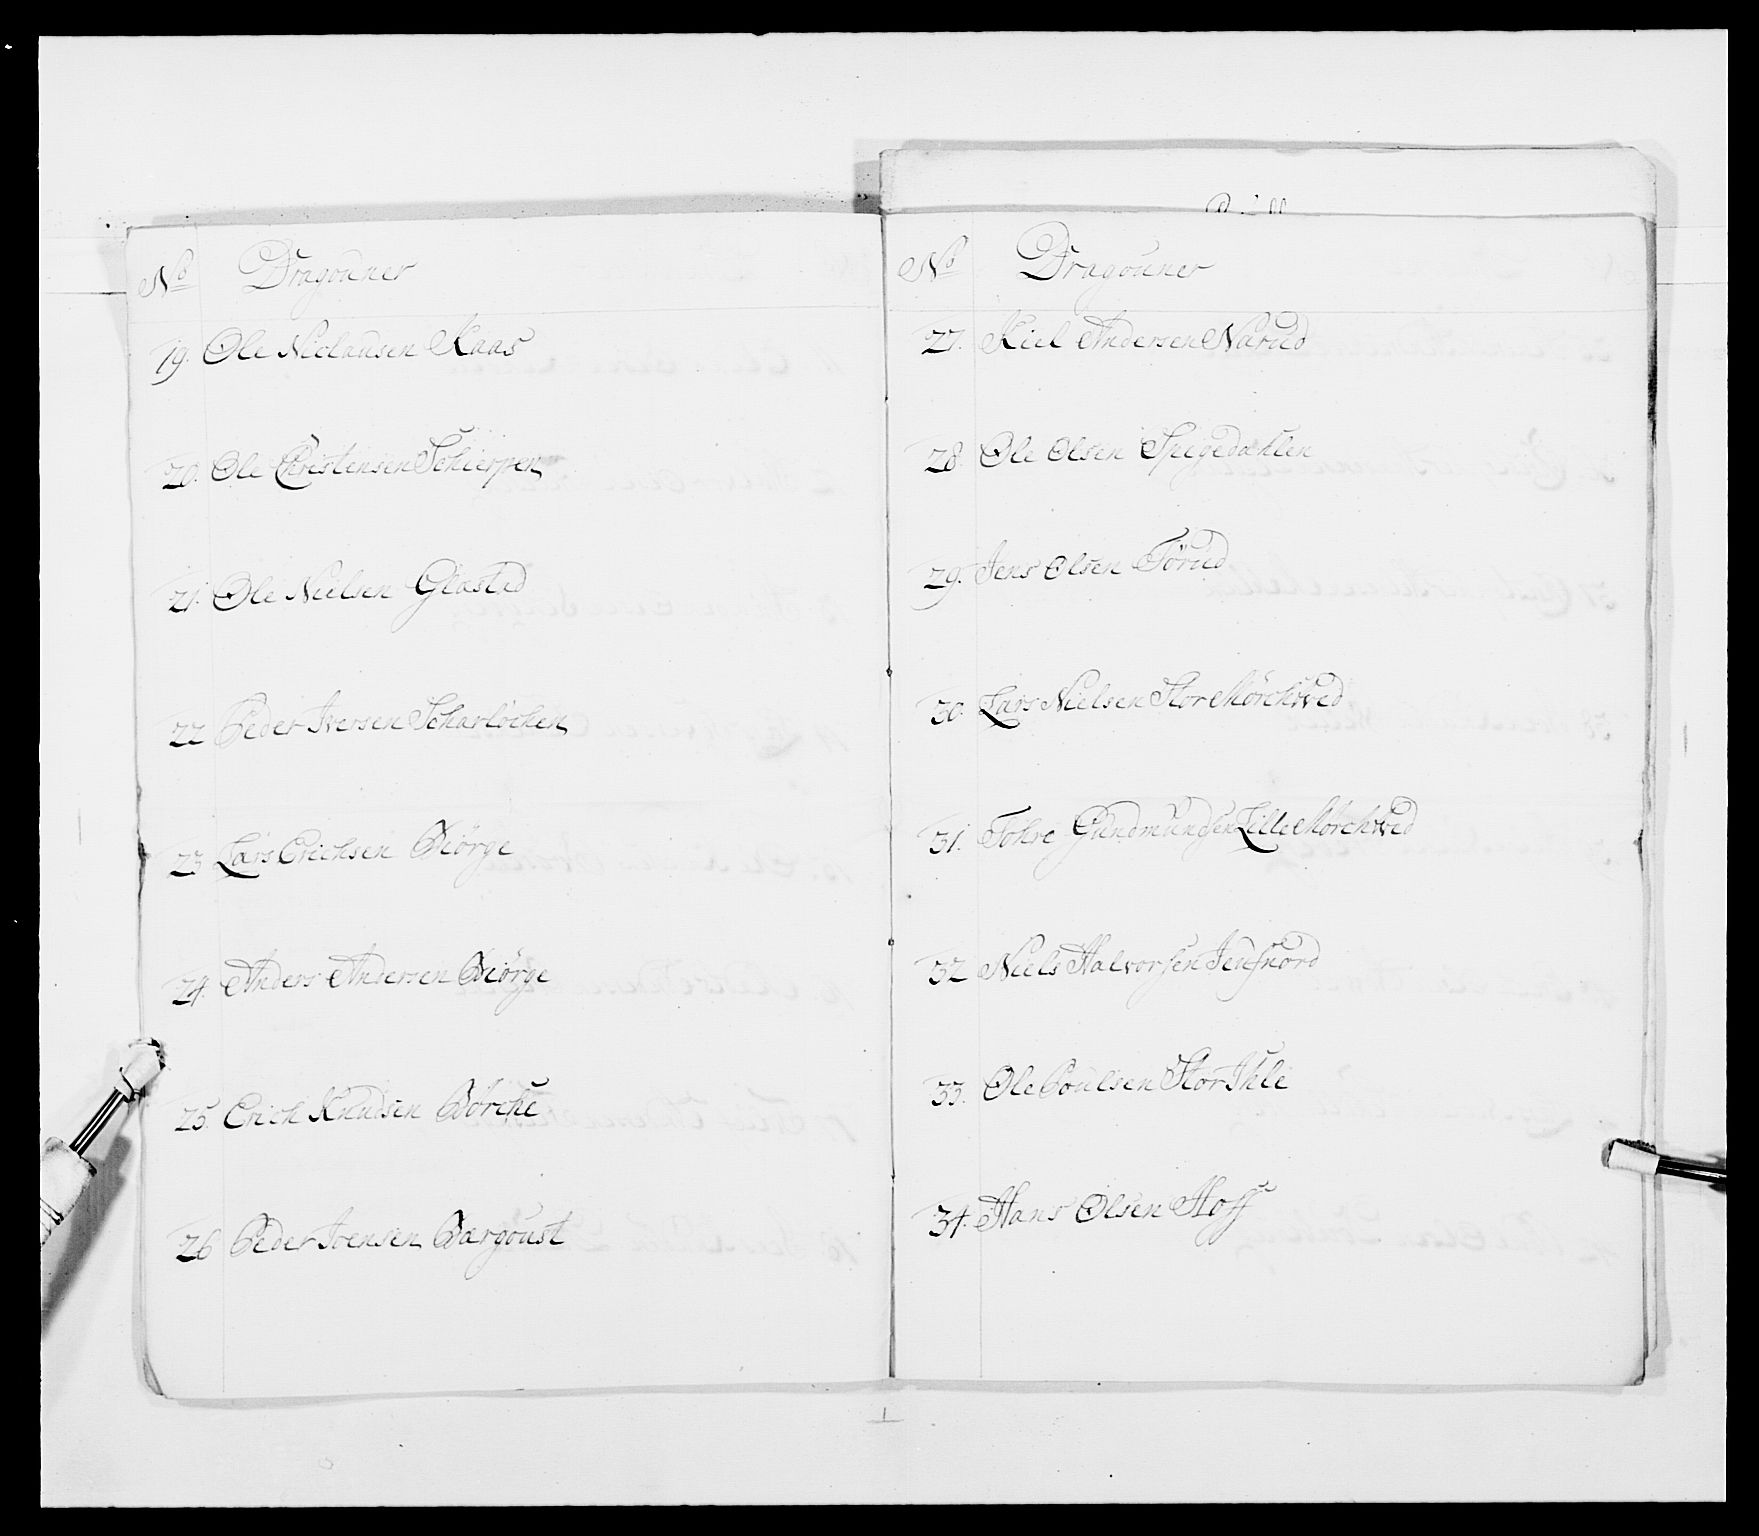 No Dragouner
19. Ole Niclausen Kaas
20. Ole Christensen Schierpen
21. Ole Nielsen Glostad
22 Peder Iversen Scharlöchen
23 Lars Erichsen Biörge
24. Anders Andersen Biörge
25. Erich Knudsen Börche
26 Peder Joensen Bærgoust
No Dragouner
27. Kiel Andersen Narud
28 Ole Olsen Spigedahlen
29. Jens Olsen Törud
30. Lars Nielsen Stor Mörchved
31. Tohre Gundmundsen Lille Mörchved
32 Niels Halvorsen Jensnord
33. Ole Poulsen Stor Ihle
34. Hans Olsen Hoff